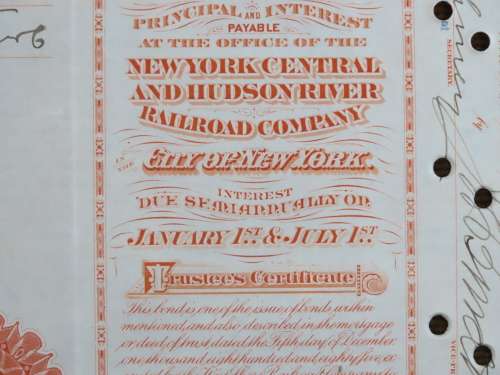 PRINCIPAL AND INTEREST
PAYABLE
AT THE OFFICE OF THE
NEW YORK CENTRAL
AND HUDSON RIVER
RAILROAD COMPANY
IN THE CITY OF NEW YORK.
INTEREST
DUE SEMIANNUALLY ON
JANUARY 1ST & JULY 1ST.
Trustee's Certificate
This bond is one of the issue of bonds, within
mentioned, and also described in the mortgage
or deed of trust dated the Fifth day of December
one thousand eight hundred and eighty five,
By
SECRETARY
VICE-P